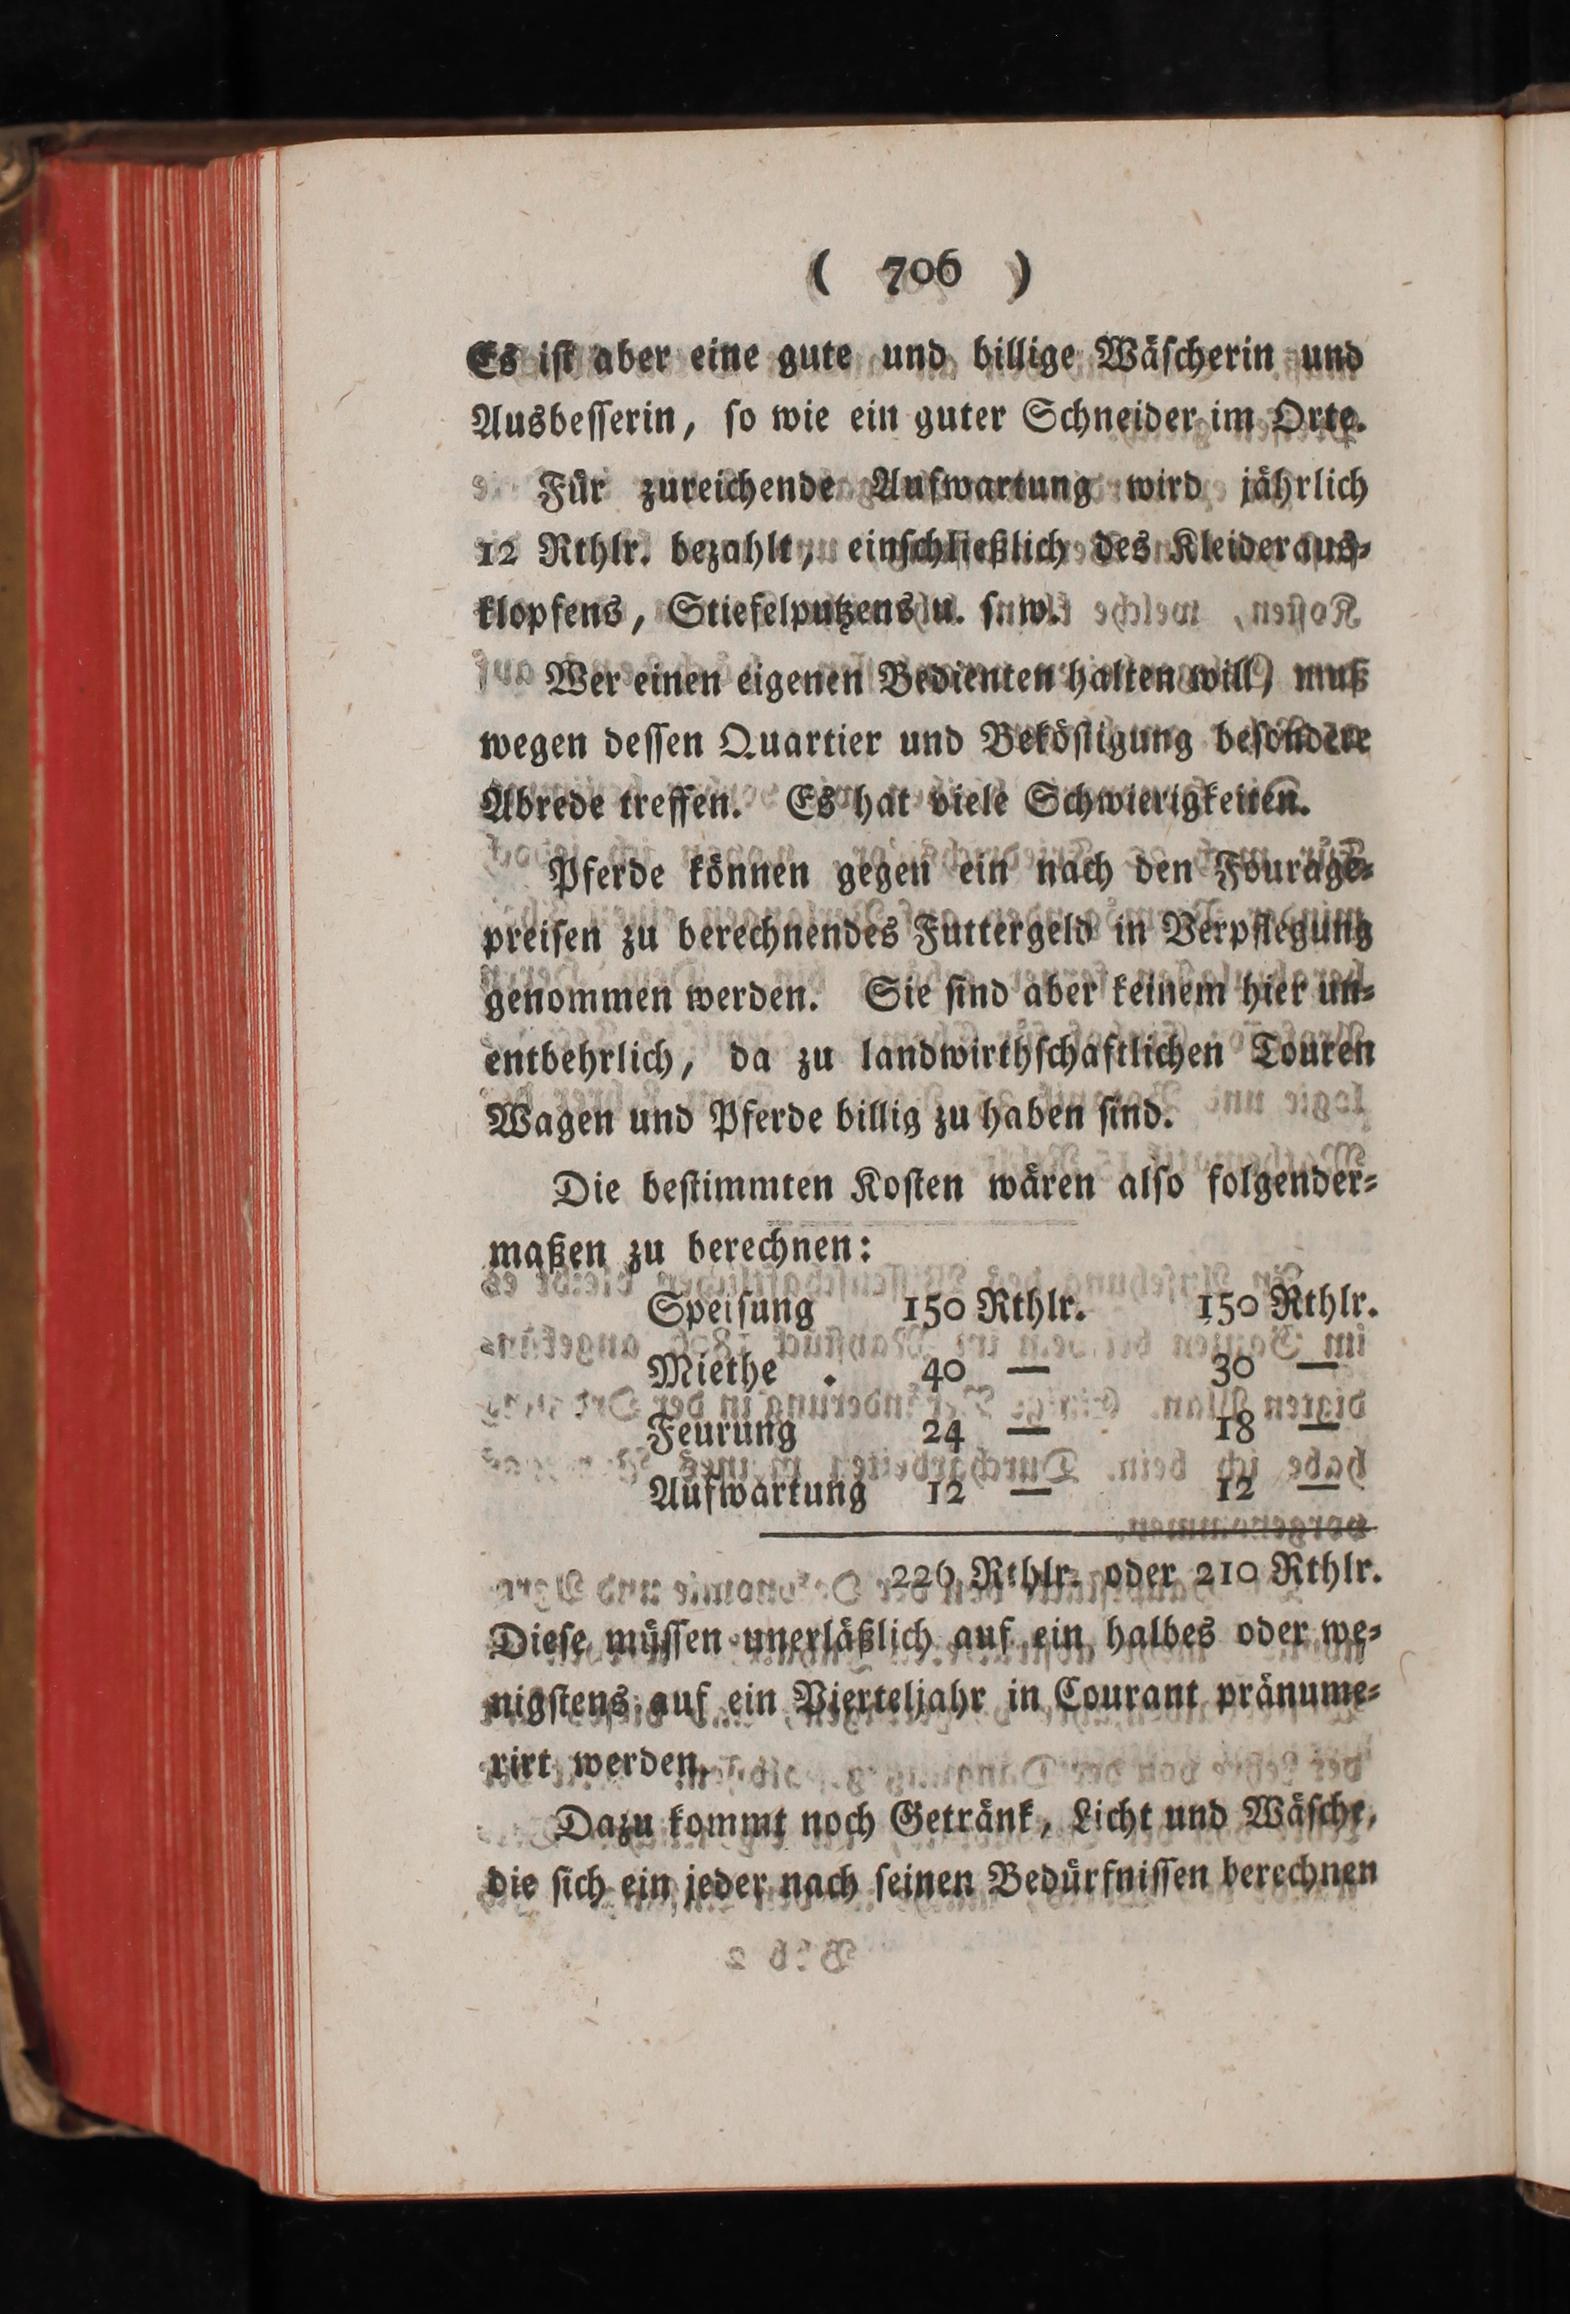 ( 706 )
Es iſt aber eine gute und billige Wäſcherin und
Ausbeſſerin, ſo wie ein guter Schneider im Orte.
Für zureichende Aufwartung wird jährlich
12 Rthlr. bezahlt, einſchließlich des Kleideraus⸗
klopfens, Stiefelputzens u. ſ. w.
Wer einen eigenen Bedienten halten will, muß
wegen deſſen Quartier und Beköſtigung beſondere
Abrede treffen. Es hat viele Schwierigkeiten.
Pferde können gegen ein nach den Fourage⸗
preiſen zu berechnendes Futtergeld in Verpflegung
genommen werden. Sie ſind aber keinem hier un⸗
entbehrlich, da zu landwirthſchaftlichen Touren
Wagen und Pferde billig zu haben ſind.
Die beſtimmten Koſten wären alſo folgender⸗
maßen zu berechnen:
Speiſung 150 Rthlr. 150 Rthlr.
Miethe . 40 — 30 —
Feurung 24 — 18 —
Aufwartung 12 — 12 —
226 Rthlr. oder 210 Rthlr.
Dieſe müſſen unerläßlich auf ein halbes oder we⸗
nigſtens auf ein Vierteljahr in Courant pränume⸗
rirt werden.
Dazu kommt noch Getränk, Licht und Wäſche,
die ſich ein jeder nach ſeinen Bedürfniſſen berechnen